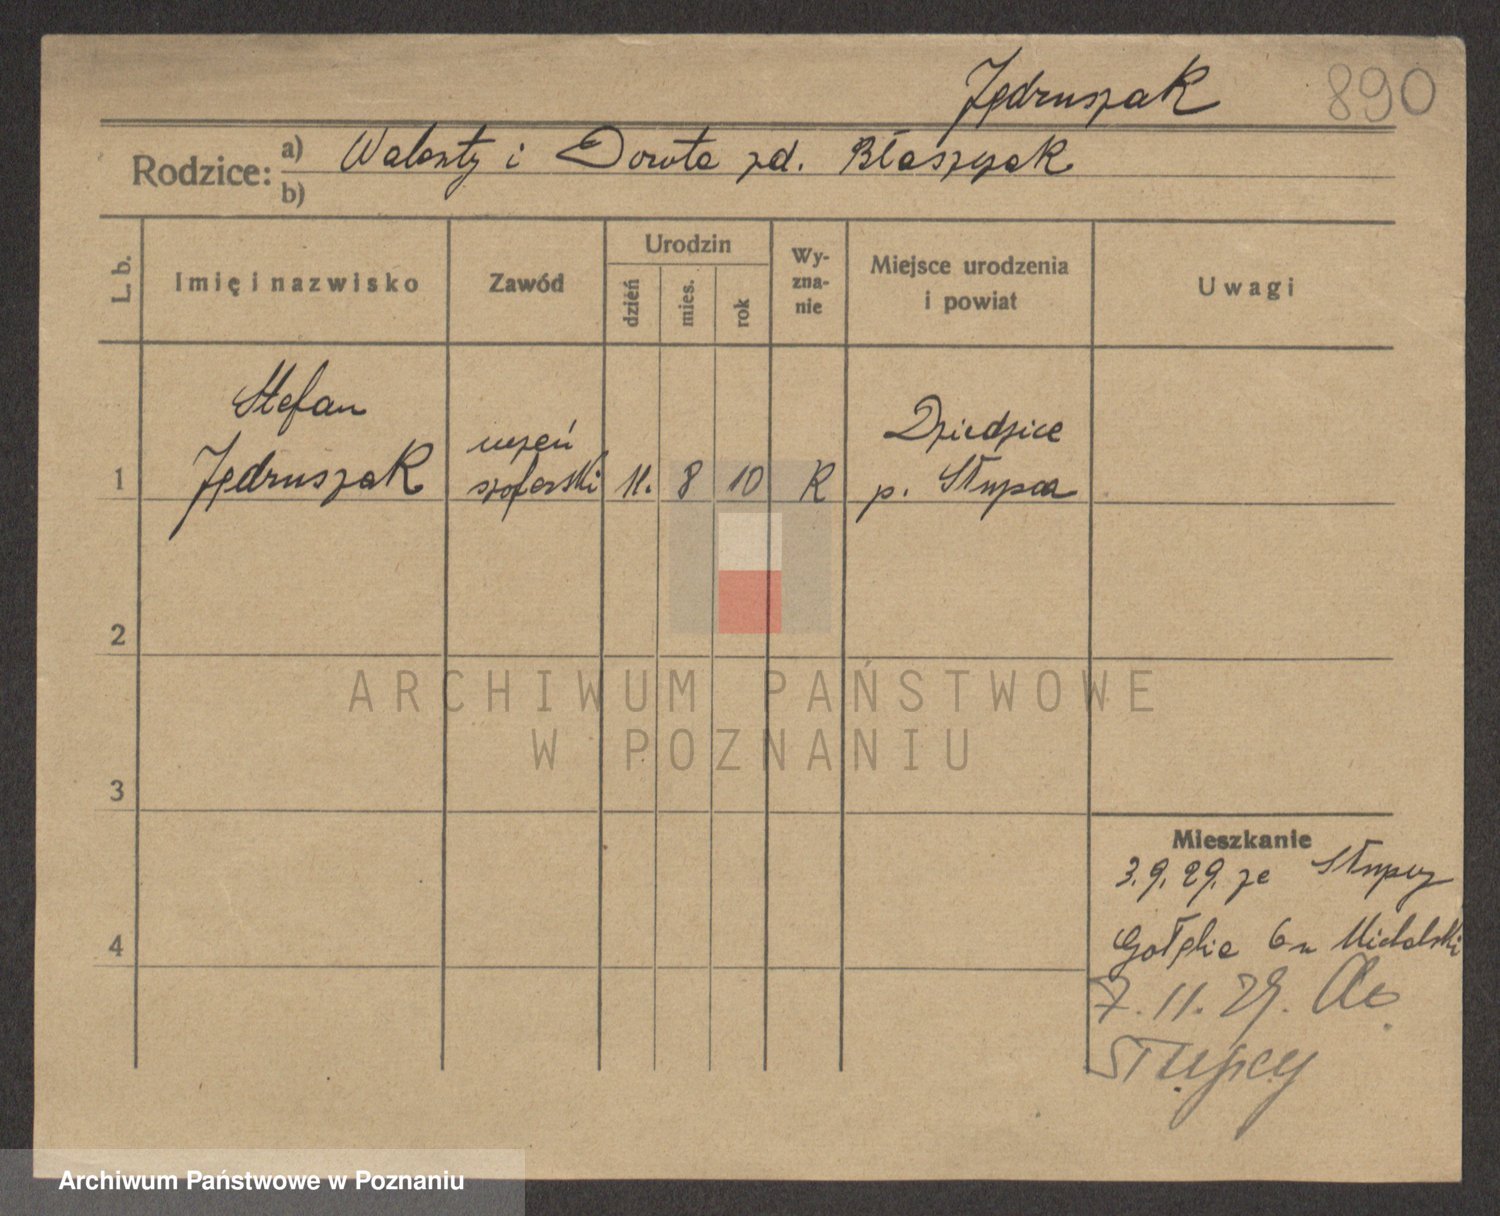 Jędruszak
890
Rodzice: a) Walenty i Dorota zd. Błaszczak
b)
L. b.
Imię i nazwisko
Zawód
Urodzin
dzień
mies.
rok
Wy-
zna-
nie
Miejsce urodzenia
i powiat
Uwagi
1
Stefan
Jędruszak
uczeń
szoferski
11.
8
10
R
Dziedzice
p. Słupca
2
3
4
ARCHIWUM PAŃSTWOWE
W POZNANIU
Mieszkanie
3.9.29. ze Słupcy
Gołębia 6 u Michalski
7.11.29. do
Słupcy
Archiwum Państwowe w Poznaniu